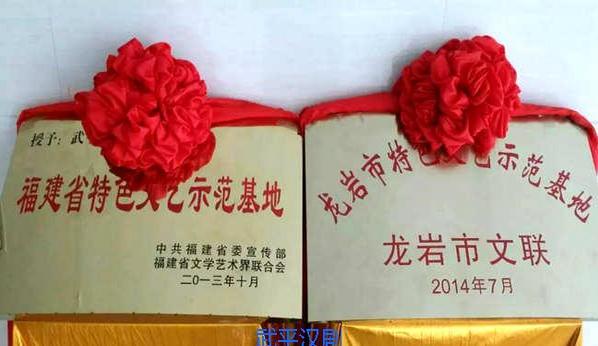 授予：武
福建省特色文艺示范基地
中共福建省委宣传部
福建省文学艺术界联合会
二〇一三年十月
龙岩市特色文艺示范基地
龙岩市文联
2014年7月
武平汉剧